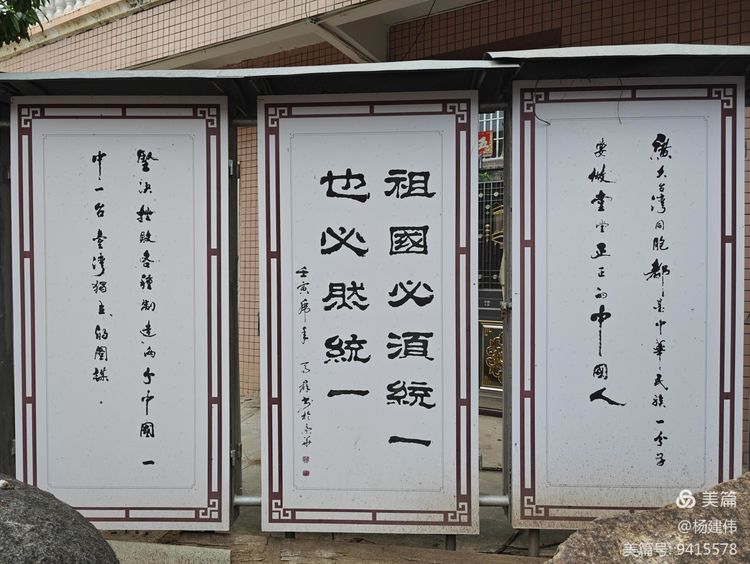 廣大台湾同胞都是中華民族一分子
要做堂堂正正的中國人
祖國必須統一
也必然統一
壬寅虎年
堅决挫败各種制造两个中國一
中一台臺湾獨立的圖謀。
美篇
@杨建伟
美篇号: 9415578